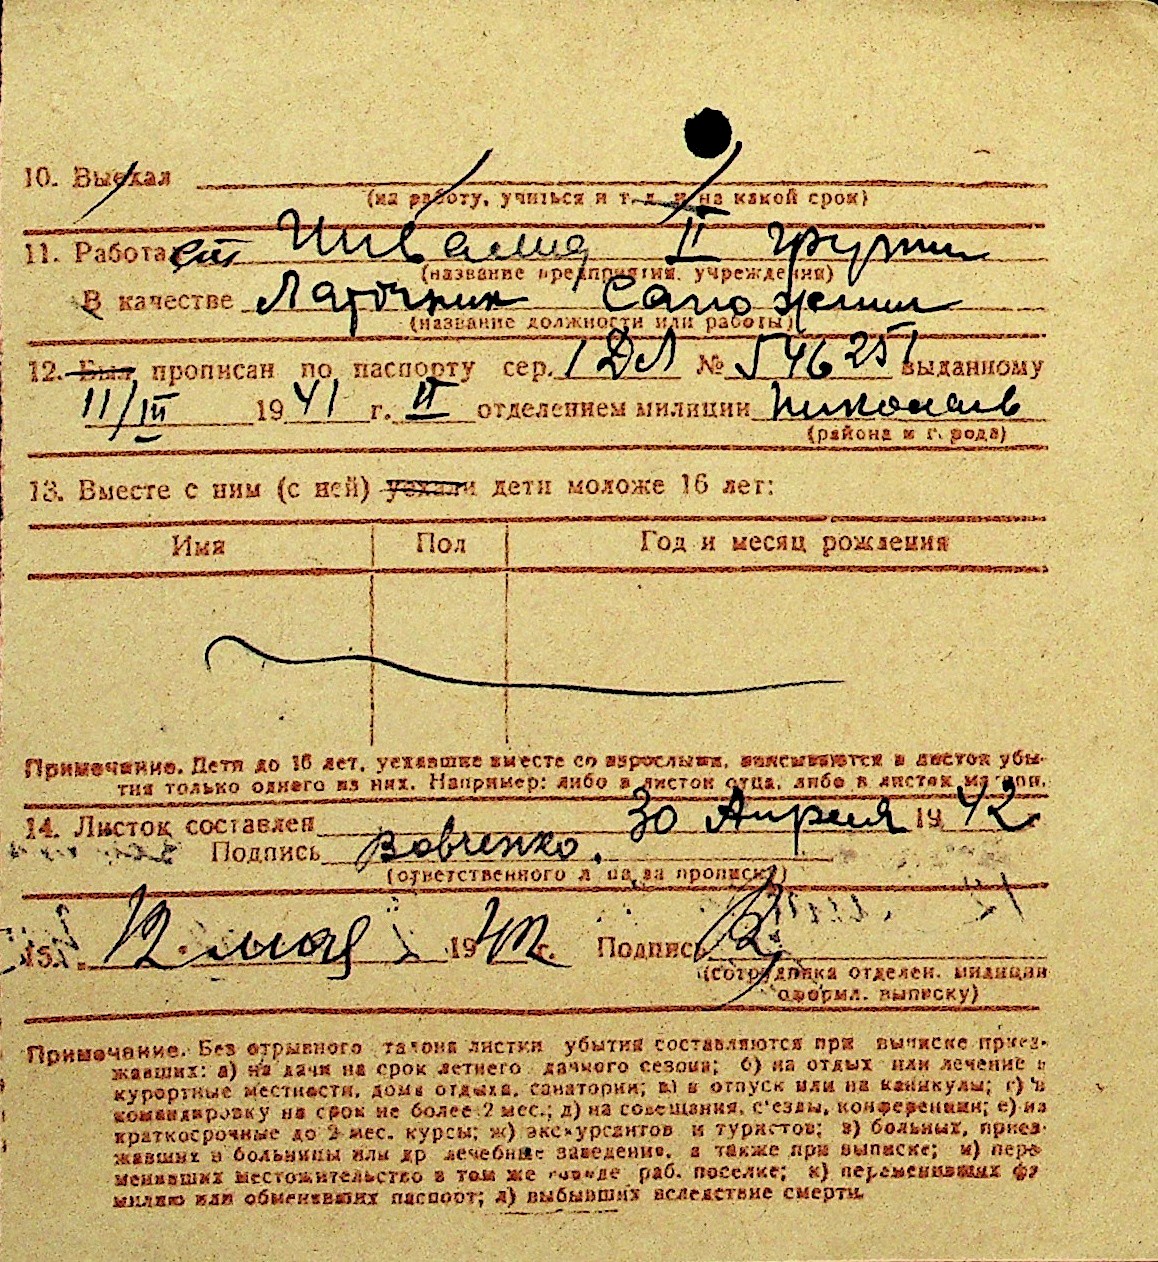 10. Выехал
(на работу, учиться и т. д. и на какой срок)
11. Работает Инвалид II групи
(название предприятия, учреждения)
В качестве Латочник Сапожник
(название должности или работы)
12. Был прописан по паспорту сер. 1 ДЛ № 546251 выданному
11/III 1941 г. II отделением милиции Николаев
(района и города)
13. Вместе с ним (с ней) уехали дети моложе 16 лет:
Имя Пол Год и месяц рождения
Примечание. Дети до 16 лет, уехавшие вместе со взрослыми, вписываются в листок убы-
тия только одного из них. Например: либо в листок отца, либо в листок матери.
14. Листок составлен 30 Апреля 1942
Подпись Вовченко.
(ответственного лица за прописку)
15. 12 мая 1942 г. Подпись
(сотрудника отделен. милиции
оформл. выписку)
Примечание. Без отрывного талона листки убытия составляются при выписке приез-
жавших: а) на дачи на срок летнего дачного сезона; б) на отдых или лечение в
курортные местности, дома отдыха, санатории; в) в отпуск или на каникулы; г) в
командировку на срок не более 2 мес.; д) на совещания, с'езды, конференции; е) на
краткосрочные до 2 мес. курсы; ж) экскурсантов и туристов; з) больных, приез-
жавших в больницы или др лечебные заведение, а также при выписке; и) пере
менивших местожительство в том же городе раб. поселке; к) переменивших фа
милию или обменявших паспорт; л) выбывших вследствие смерти.